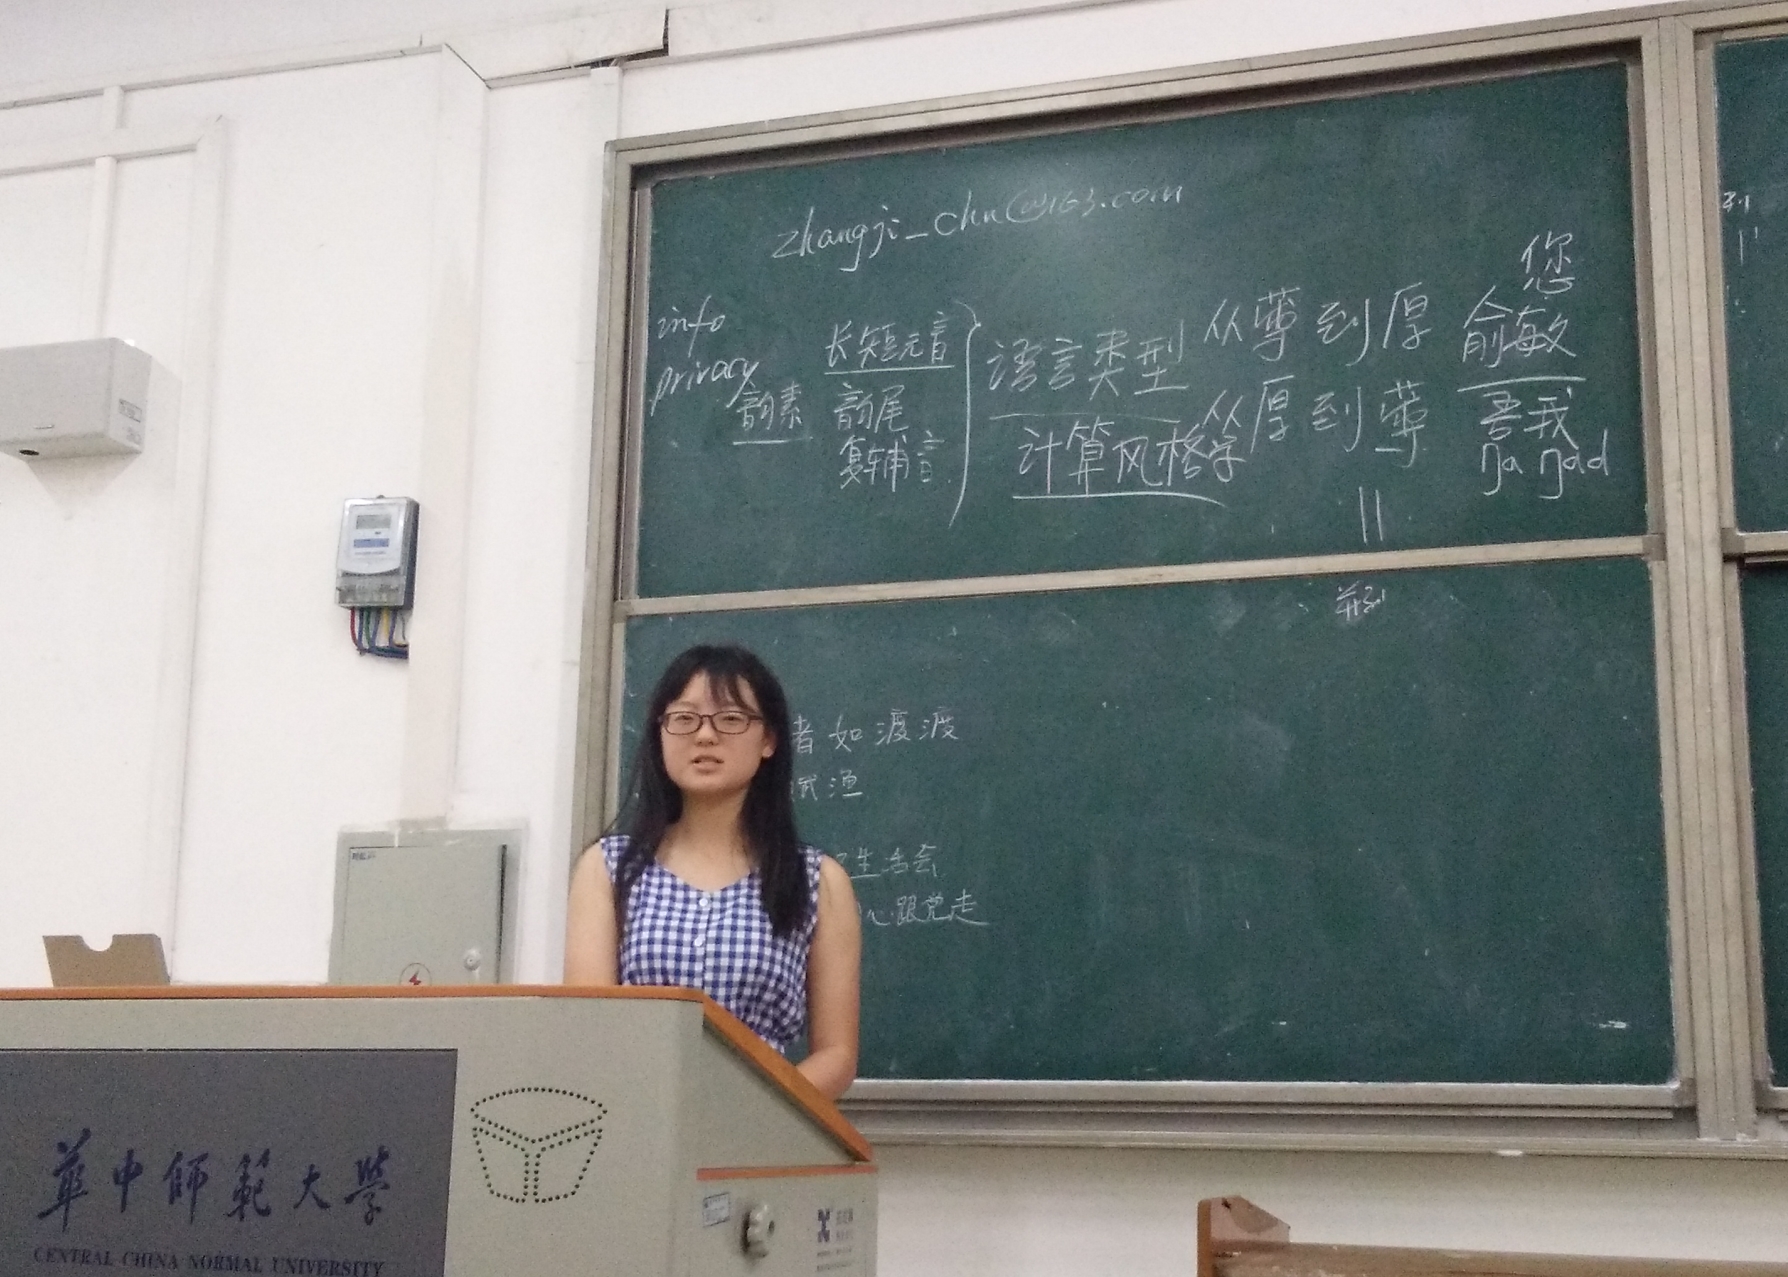 zhangji_chn@163.com
info
privacy
韵素
长短元音
韵尾
复辅音
語言类型
计算风格学
从薄到厚
从厚到薄
||
您
俞敏
吾我
ŋa ŋad
者如渡渡
试渔
生活会
心跟党走
華中師範大學
CENTRAL CHINA NORMAL UNIVERSITY